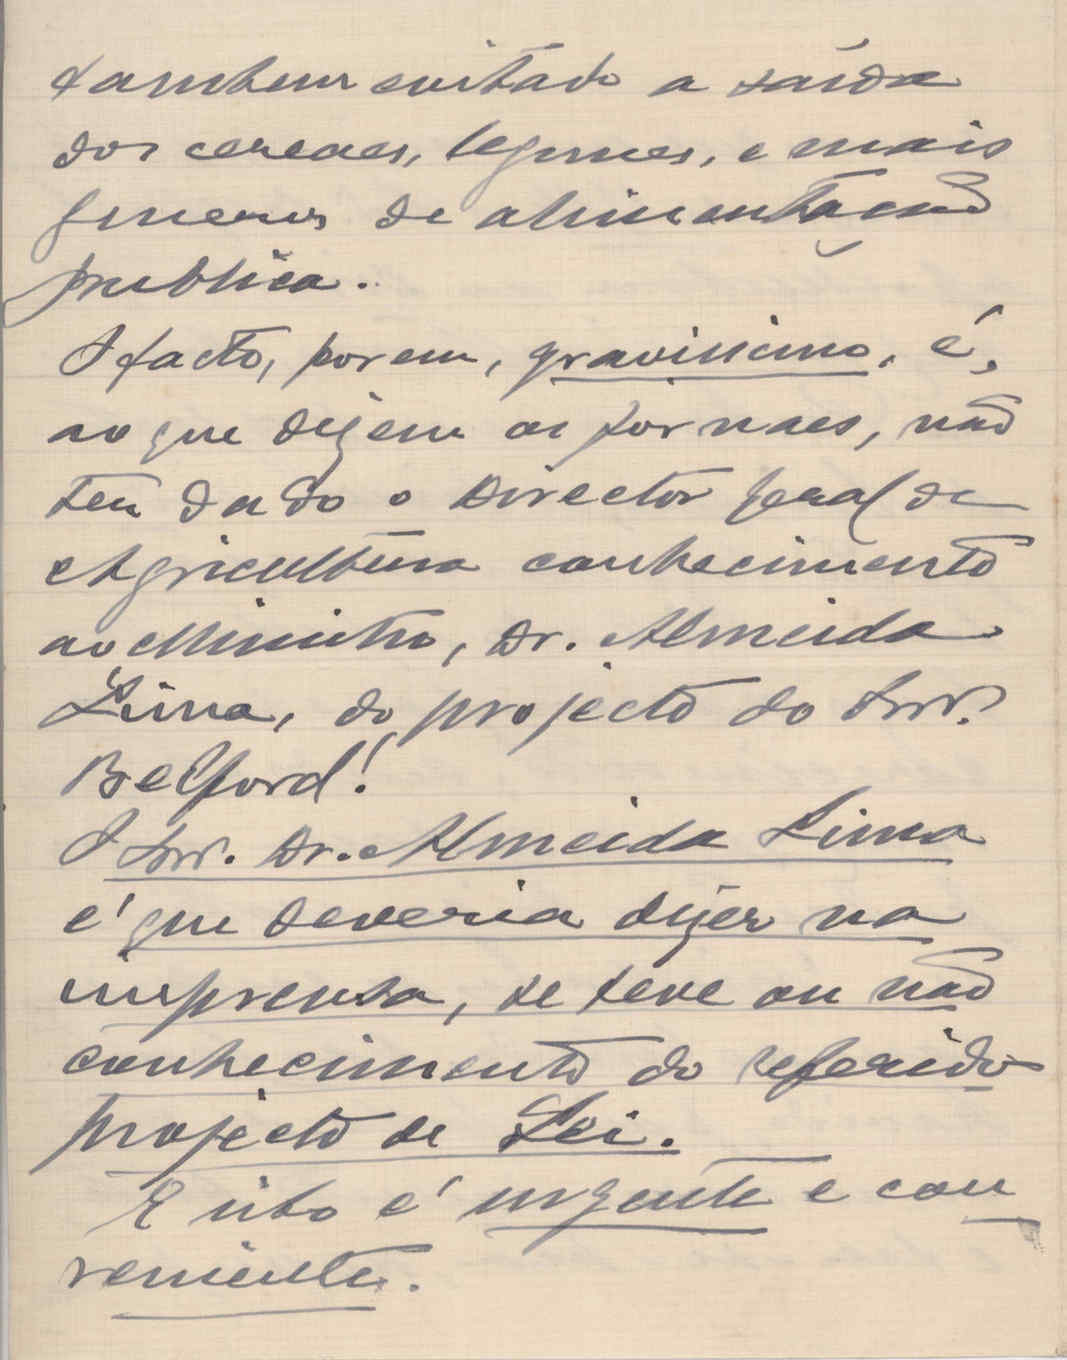 tambem evitado a saída
dos cereaes, legumes, e mais
generos de alimentação
publica.
O facto, porem, gravissimo, é,
ao que dizem os jornaes, não
ter dado o Director Geral de
Agricultura conhecimento
ao Ministro, Dr. Almeida
Lima, do projecto do Snr.
Belford!
O Snr. Dr. Almeida Lima
é que deveria dizer na
imprensa, se teve ou não
conhecimento do referido
projecto de Lei.
E isto é urgente e con
veniente.